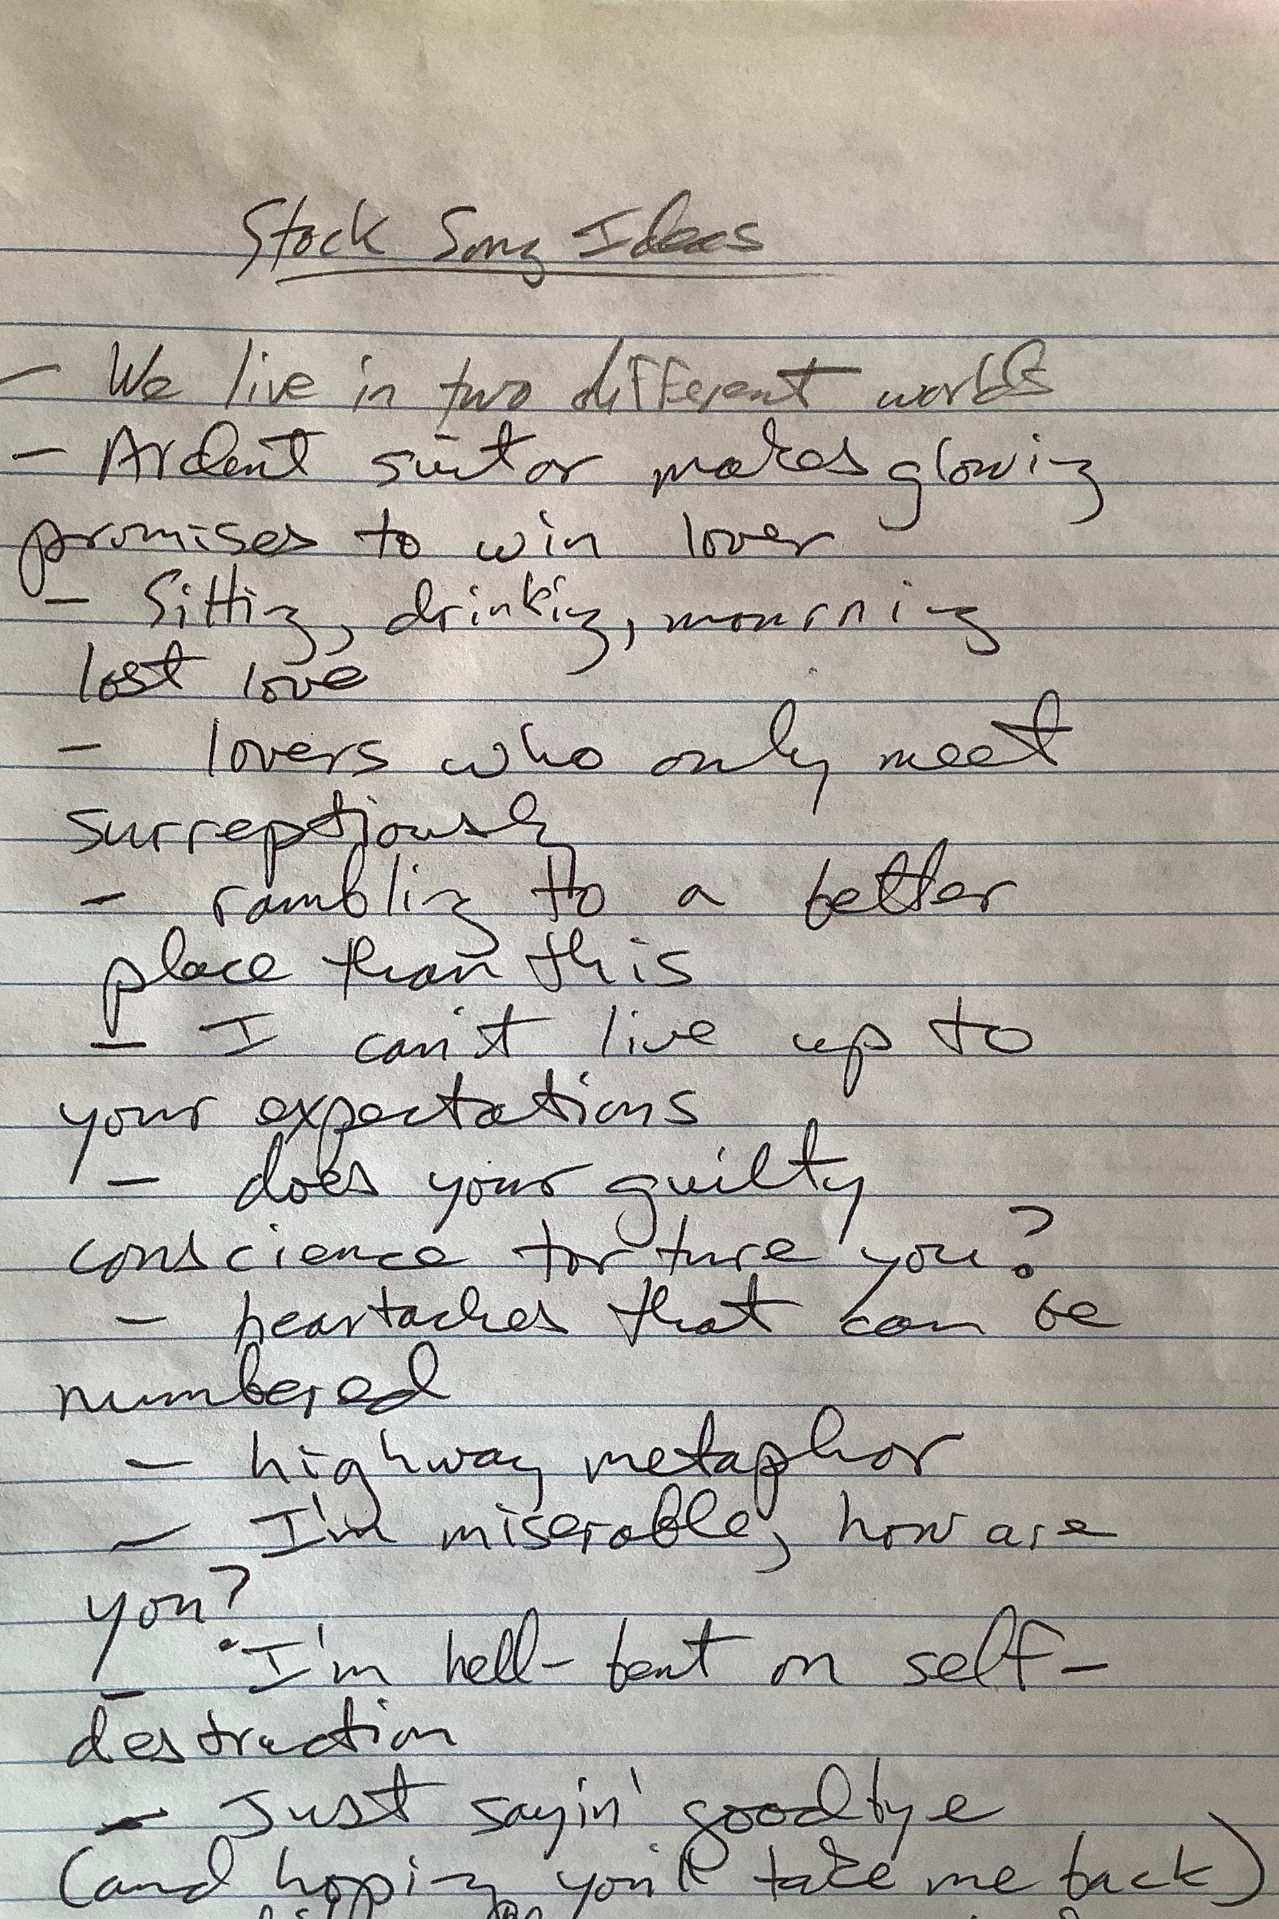 Stock Song Ideas
- We live in two different worlds
- Ardent suitor makes glowing
promises to win lover
- Sitting, drinking, mourning
lost love
- lovers who only meet
surreptiously
- rambling to a better
place than this
- I can't live up to
your expectations
- does your guilty
conscience torture you?
- heartaches that can be
numbered
- highway metaphor
- I'm miserable, how are
you?
- I'm hell-bent on self-
destruction
- Just sayin' goodbye
(and hoping you'll take me back)